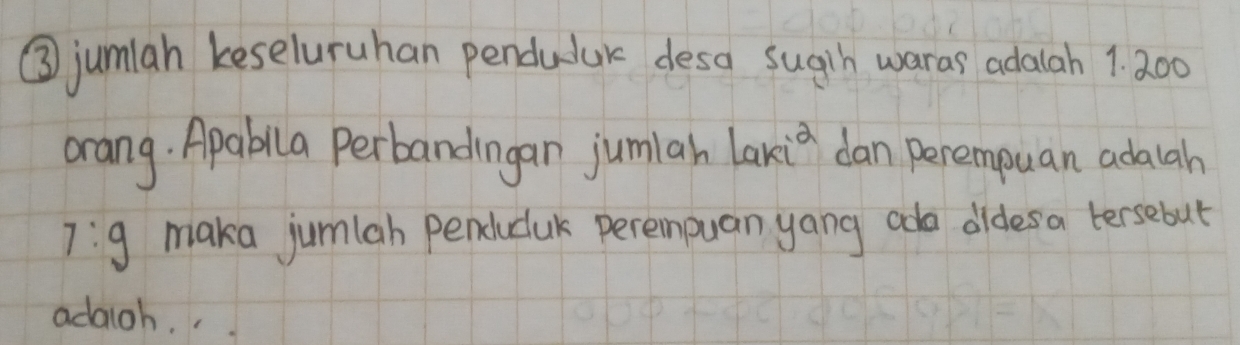 ③ jumlah keseluruhan penduduk desa sugih waras adalah 1.200
orang. Apabila perbandingan jumlah laki² dan perempuan adalah
7:9 maka jumlah penduduk perempuan yang ada didesa tersebut
adalah...